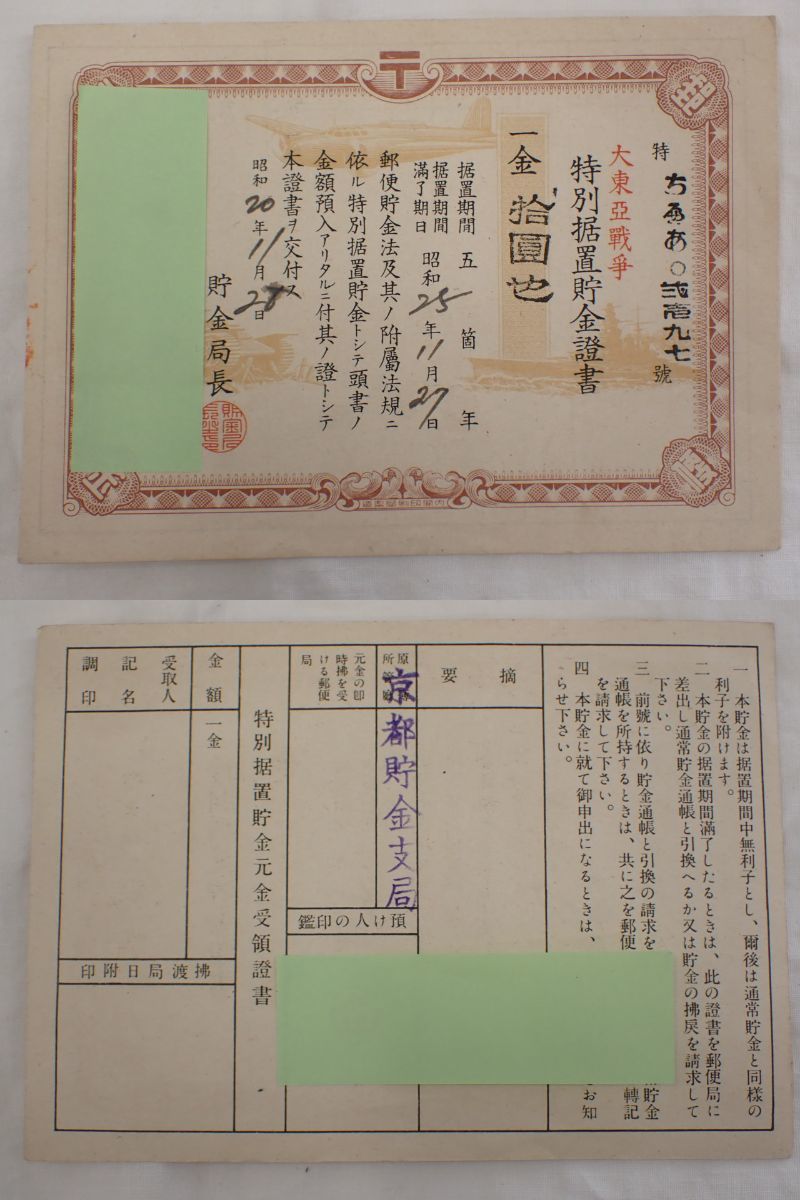 特 ちゑあ〇弐壱九七 號
大東亞戰爭
特別据置貯金證書
一金 拾圓也
据置期間 五箇年
据置期間滿了期日 昭和25年11月27日
郵便貯金法及其ノ附屬法規ニ
依ル特別据置貯金トシテ頭書ノ
金額預入アリタルニ付其ノ證トシテ
本證書ヲ交付ス
昭和20年11月28日
貯金局長
一 本貯金は据置期間中無利子とし、爾後は通常貯金と同樣の
利子を附けます。
二 本貯金の据置期間滿了したるときは、此の證書を郵便局に
差出し通常貯金通帳と引換へるか又は貯金の拂戾を請求して
下さい。
三 前號に依り貯金通帳と引換の請求を
貯金
通帳を所持するときは、共に之を郵便
轉記
を請求して下さい。
四 本貯金に就て御申出になるときは、
お知
らせ下さい。
摘要
京都貯金支局
元金の卽時拂を受ける郵便局
預け人の印鑑
特別据置貯金元金受領證書
金額
一金
受取人記名調印
拂渡局日附印